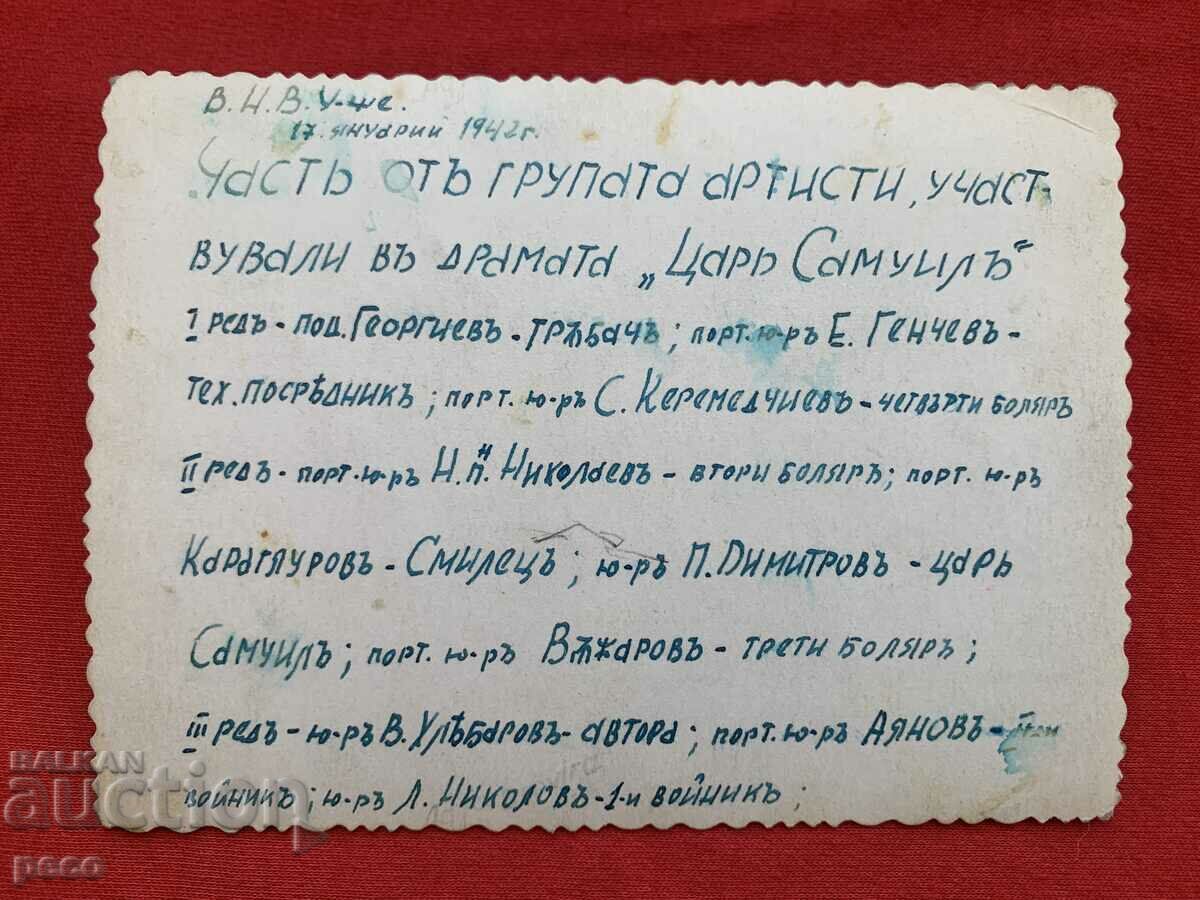 В. Н. В. У-ще.
17. януарий 1942 г.
Часть отъ групата артисти, участ-
вували въ драмата „Царь Самуилъ"
I редъ - под. Георгиевъ - тръбачъ; порт. ю-ръ Е. Генчевъ -
тех. посрѣдникъ; порт. ю-ръ С. Керемедчиевъ - четвърти боляръ
II редъ - порт. ю-ръ Н. П. Николаевъ - втори боляръ; порт. ю-ръ
Карагяуровъ - Смилецъ; ю-ръ П. Димитровъ - царь
Самуилъ; порт. ю-ръ Вѫжаровъ - трети боляръ;
III редъ - ю-ръ В. Хлѣбаровъ - автора; порт. ю-ръ Аяновъ -
войникъ; ю-ръ Л. Николовъ - 1-и войникъ;
BALKAN
auction
peco